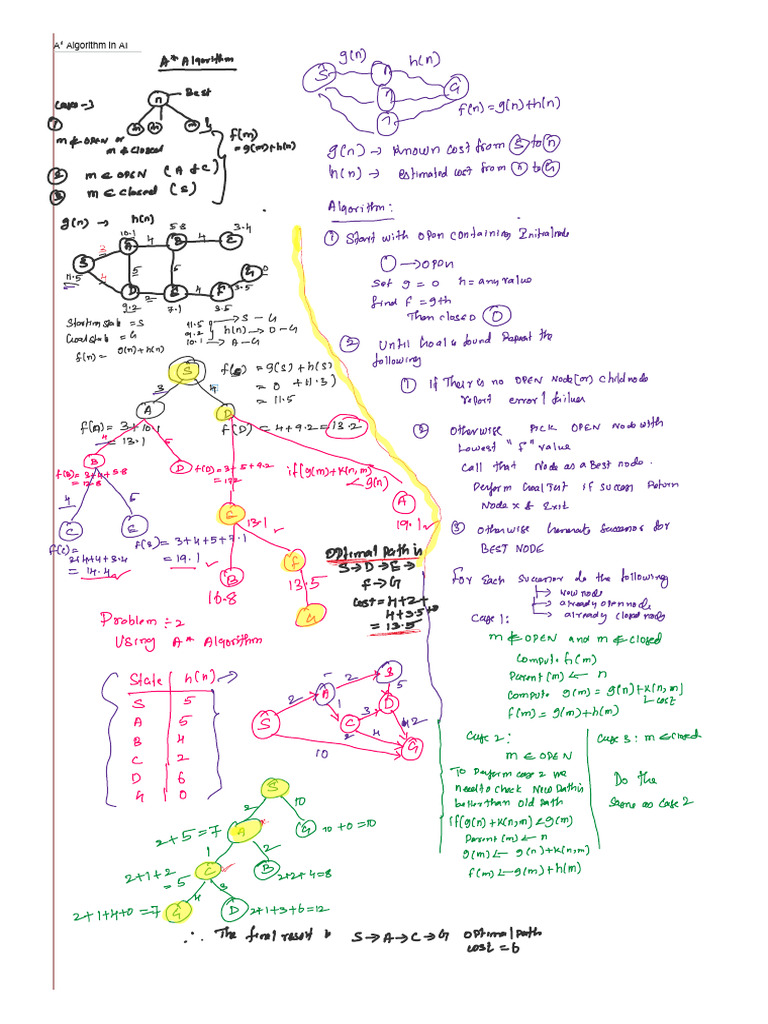 A* Algorithm in AI
A* Algorithm
Best
n
Cases →
①
m ∉ OPEN or
m ∉ closed
f(m)
= g(m)+h(n)
② m ∈ OPEN (A & C)
③ m ∈ closed (S)
g(n) → h(n)
10.1
5.8
3.4
3
4
4
S
A
B
C
11.5
4
5
5
3.5
0
D
2
E
4
F
G
9.2
7.1
3.5
Starting state = S
Goal state = G
f(n) = g(n)+h(n)
11.5 → S - G
9.2 h(n) → D - G
10.1 → A - G
S
f(S) = g(S) + h(S)
= 0 + 11.5)
= 11.5
3
4
A
D
f(A) = 3+10.1
= 13.1
f(D) = 4+9.2 = 13.2
4
5
B
f(B) = 3+4+5.8
= 12.8
D
f(D) = 3+5+9.2
if(g(m)+k(n,m)
< g(n)
A
19.1 ✓
4
5
C
E
E
13.1 ✓
f(E) = 3+4+5+7.1
= 19.1 ✓
= 14.4 ✓
B
16.8
F
13.5
G
Optimal path is
S → D → E →
F → G
cost = 4+2+
4+3.5+0
= 13.5
Problem :- 2
Using A* Algorithm
State h(n) →
S 5
A 5
B 4
C 2
D 6
G 0
S
2
A
2
B
1
5
C
3
D
2
4
G
10
S
2
10
2+5=7
A
G
10+0=10
1
2
2+1+2
= 5
C
B
2+2+4=8
4
3
2+1+4+0=7
G
D
2+1+3+6=12
∴ The final result is S → A → C → G optimal path
cost = 6
g(n)
h(n)
S
n
n
n
G
f(n) = g(n)+h(n)
g(n) → Known cost from S to n
h(n) → estimated cost from n to G
Algorithm:
① Start with OPEN containing Initial node
→ OPEN
Set g = 0 h = any value
find f = g+h
Then closed
② Until Goal is found Repeat the
following
① If There is no OPEN Node (or) child node
report error / failure
② Otherwise PICK OPEN Node with
Lowest "f" value
Call that Node as a Best node.
Perform Goal Test if success Return
Node x & Exit
③ Otherwise Generate Successor for
BEST NODE
For Each successor do the following
→ New node
→ already open node
→ already closed node
Case 1:
m ∉ OPEN and m ∉ closed
Compute h(m)
Parent(m) ← n
Compute g(m) = g(n)+k(n,m)
cost
f(m) = g(m)+h(m)
Case 2:
m ∈ OPEN
To perform case 2 we
need to check New Path is
better than old path
if(g(n)+k(n,m) < g(m)
Parent(m) ← n
g(m) ← g(n)+k(n,m)
f(m) ← g(m)+h(m)
Case 3: m ∈ closed
Do the
same as case 2